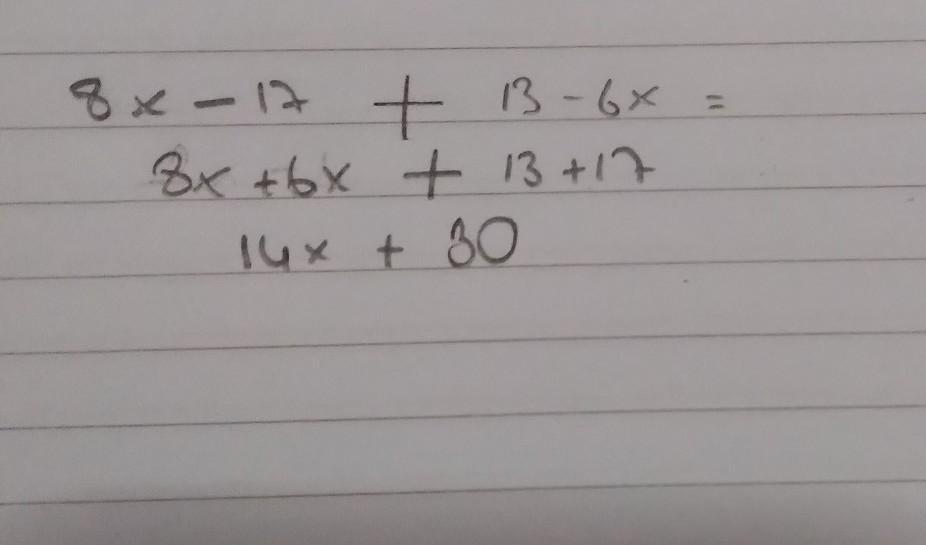 8x - 17 + 13 - 6x =
8x + 6x + 13 + 17
14x + 30